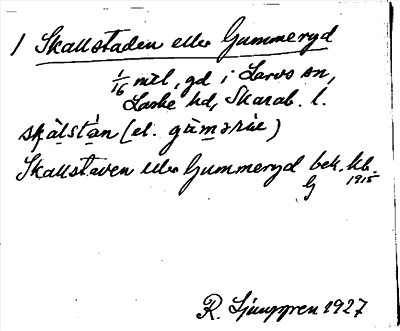 1 Skallstaden eller Gummeryd
1/16 mtl, gd i Larvs sn,
Laske hd, Skarab. l.
skàlstàn (el. gùmərìe)
Skallstaven eller Gummeryd bek. kb.
G 1915
R. Ljunggren 1927